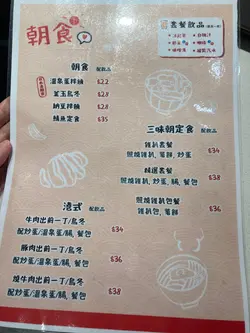 朝食
套餐飲品
朝食 配飲品
溫泉蛋拌麵 $22
釜玉烏冬 $28
納豆拌麵 $28
鯖魚定食 $35
三味朝定食 配飲品
雜扒套餐 $34
照燒雞扒, 薯餅, 炒蛋
精選套餐 $38
照燒雞扒, 炒蛋, 腸, 餐包
照燒雞扒包餐 $36
雞扒包, 薯餅
港式 配飲品
牛肉出前一丁/烏冬 $34
配炒蛋/溫泉蛋/腸, 餐包
豚肉出前一丁/烏冬 $36
配炒蛋/溫泉蛋/腸, 餐包
燒牛肉出前一丁/烏冬 $38
配炒蛋/溫泉蛋/腸, 餐包